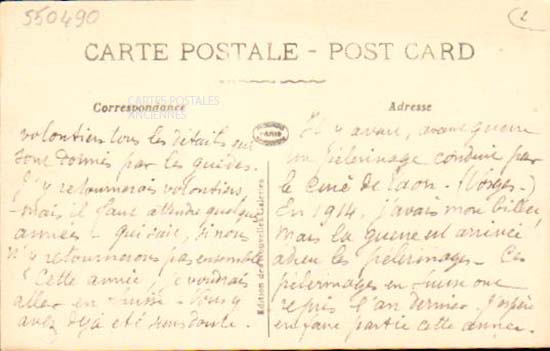 550490
2
CARTE POSTALE - POST CARD
CARTES POSTALES
ANCIENNES
Correspondance
volontiers tous les détails qui
sont donnés par les guides.
J'y retournerais volontiers
mais il faut attendre quelques
années - qui sait, si nous
n'y retournerons pas ensemble
Cette année, je voudrais
aller en Suisse - vous y
avez déjà été sans doute.
Edition des Nouvelles Galeries
PARIS
Adresse
Il y avait, avant guerre
un pèlerinage conduit par
le Curé de (Vosges -)
En 1914, j'avais mon billet,
mais la guerre est arrivée,
adieu les pèlerinages - Ces
pèlerinages en Suisse ont
repris l'an dernier j'espère
en faire partie cette année.